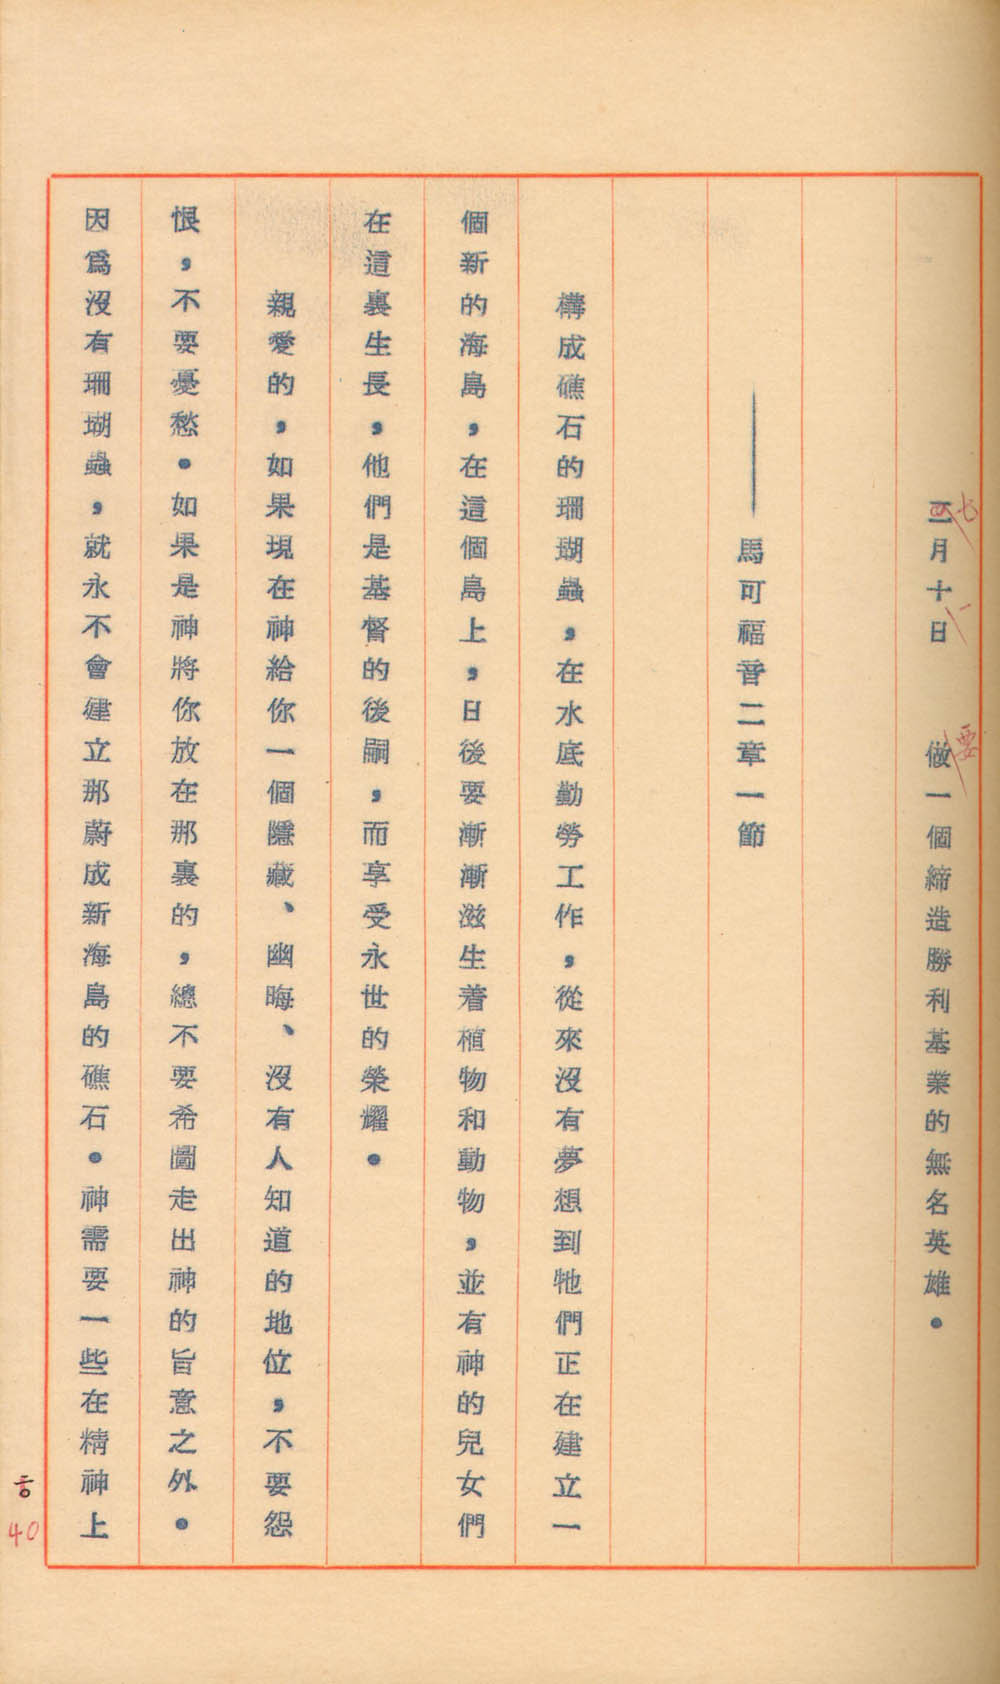 三月十日　　做一個締造勝利基業的無名英雄。
七
一
要
——馬可福音二章一節
構成礁石的珊瑚蟲，在水底勤勞工作，從來沒有夢想到牠們正在建立一
個新的海島，在這個島上，日後要漸漸滋生着植物和動物，並有神的兒女們
在這裏生長，他們是基督的後嗣，而享受永世的榮耀。
親愛的，如果現在神給你一個隱藏、幽晦、沒有人知道的地位，不要怨
恨，不要憂愁。如果是神將你放在那裏的，總不要希圖走出神的旨意之外。
因爲沒有珊瑚蟲，就永不會建立那蔚成新海島的礁石。神需要一些在精神上
40